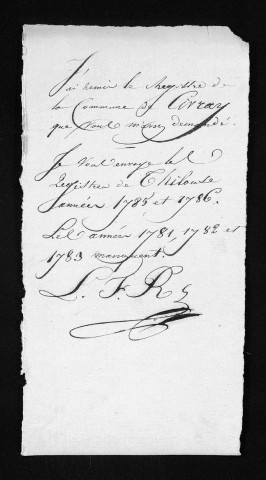 J'ai remis le Registre de
la Commune de Civray
que vous m'avez demandé.
Je vous envoye les
Registre de Thilouse
années 1785 et 1786.
Les années 1781, 1782 et
1783 manquent.
L. F. R